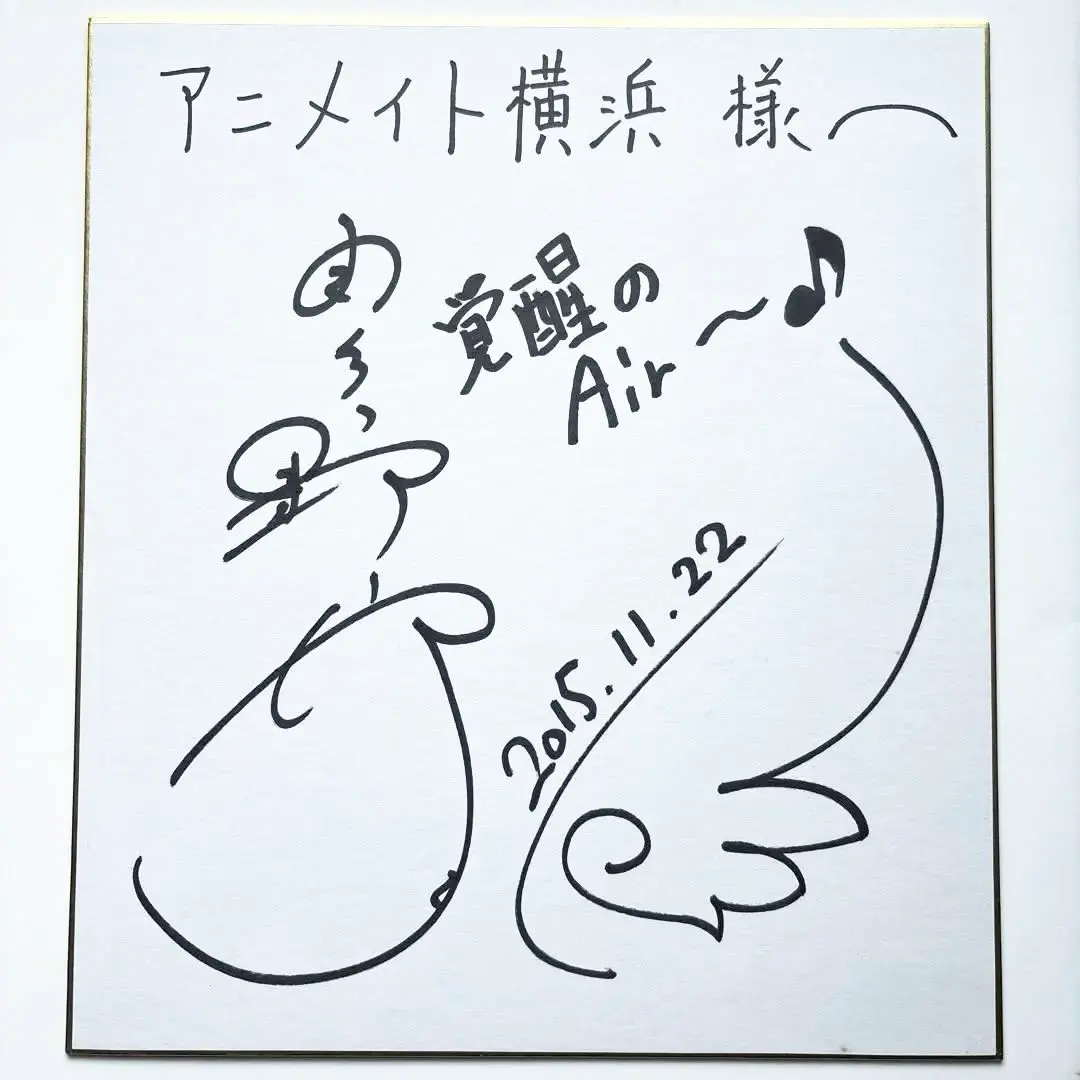 アニメイト横浜 様へ
覚醒の
Air～♪
2015.11.22